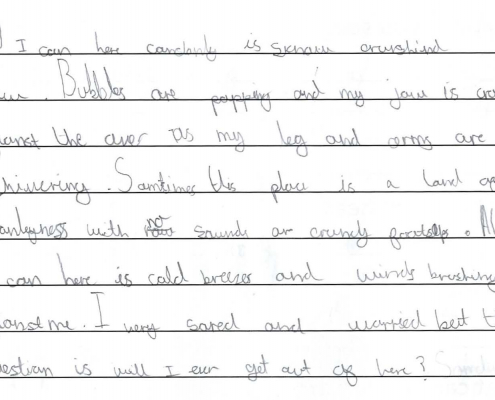 I can here canstanly is snow crushind
. Bubbles are popping and my jaw is
the aver as my leg and arms are
hivering. Somtimes this place is a land of
anlyness with no sounds or crunchy footsteps. Al
can here is cold breezes and winds brushing
anst me. I very scared and worried but t
estian is will I ever get out of here?